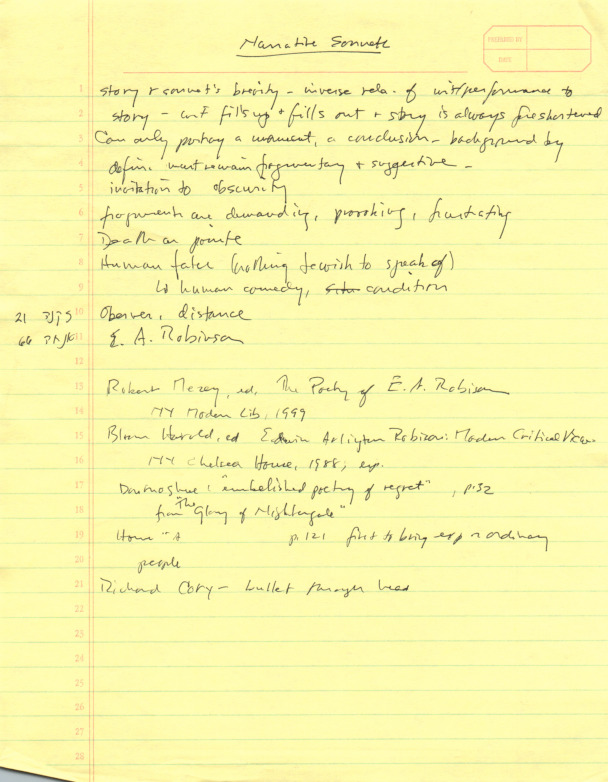 Narrative Sonnets
PREPARED BY
DATE
1 story & sonnet's brevity - inverse rela. of wit/performance to
2 story - wit fills up & fills out & story is always foreshortened
3 Can only portray a moment, a conclusion - background by
4 defin. must remain fragmentary & suggestive -
5 invitation to obscurity
6 fragments are demanding, provoking, frustrating
7 Death on pointe
8 Human fate (nothing Jewish to speak of)
9 human comedy, condition
21 10 Observer, distance
66 11 E. A. Robinson
12
13 Robert Mezey, ed. The Poetry of E. A. Robinson
14 NY Modern Lib, 1999
15 Bloom Harold, ed Edwin Arlington Robinson: Modern Critical Views
16 NY Chelsea House, 1988, esp.
17 Donoghue: "embellished poetry of regret", p. 32
18 from "The Glory of Nightingale"
19 p. 121 first to bring exp n ordinary
20 people
21 Richard Cory - bullet through head
22
23
24
25
26
27
28